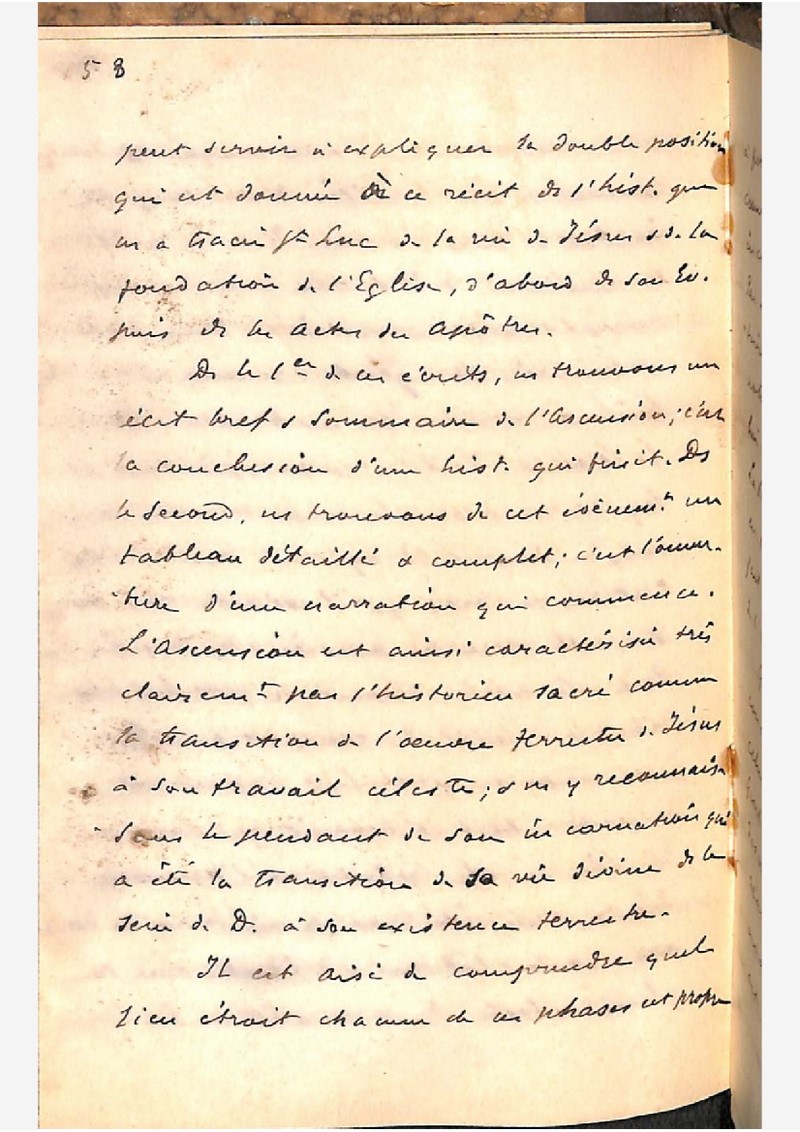 58
peut servir à expliquer la double position
qui est donnée à ce récit ds l'hist. que
ns a tracée St Luc de la vie de Jésus & de la
fondation de l'Eglise, d'abord ds son Ev.
puis ds les Actes des Apôtres.
Ds le 1er de ces écrits, ns trouvons un
récit bref & sommaire de l'Ascension; c'est
la conclusion d'une hist. qui finit. Ds
le second, ns trouvons de cet évènemt un
tableau détaillé & complet; c'est l'ouver-
ture d'une narration qui commence.
L'Ascension est ainsi caractérisée très
clairemt par l'historien sacré comme
la transition de l'oeuvre terrestre de Jésus
à son travail céleste; & ns y reconnais-
sons le pendant de son incarnation qui
a été la transition de sa vie divine ds le
sein de D. à son existence terrestre.
Il est aisé de comprendre quel
lien étroit chacune de ces phases est propre